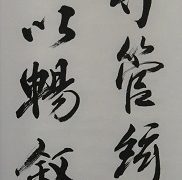 竹管絃
以暢叙